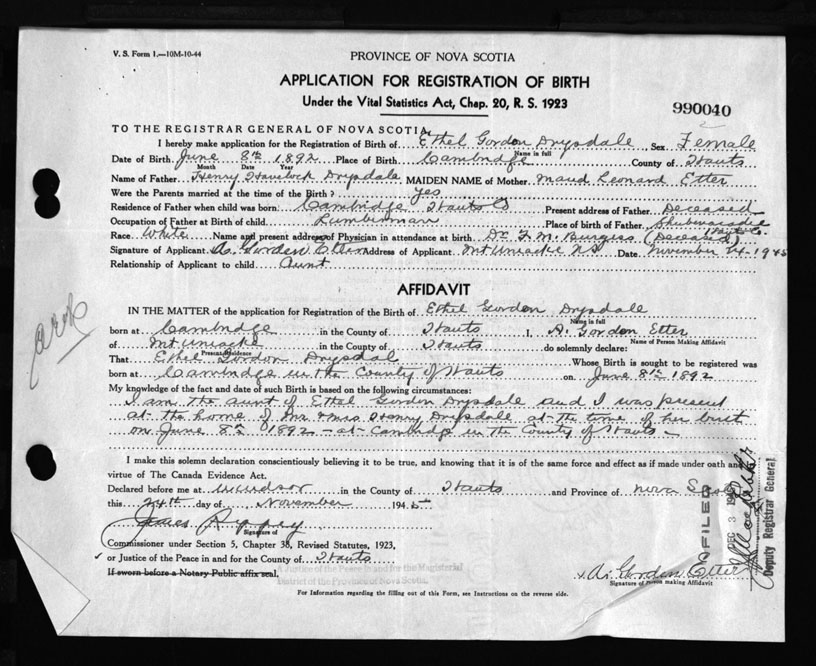 V. S. Form 1.—10M-10-44
PROVINCE OF NOVA SCOTIA
APPLICATION FOR REGISTRATION OF BIRTH
Under the Vital Statistics Act, Chap. 20, R. S. 1923
990040
TO THE REGISTRAR GENERAL OF NOVA SCOTIA
I hereby make application for the Registration of Birth of Ethel Gordon Drysdale Sex Female
Name in full
Date of Birth June 8th 1892 Place of Birth Cambridge County of Hants
Month Date Year
Name of Father Henry Havelock Drysdale MAIDEN NAME of Mother Maud Leonard Etter
Were the Parents married at the time of the Birth? yes
Residence of Father when child was born: Cambridge Hants Co Present address of Father Deceased
Occupation of Father at Birth of child Lumberman Place of birth of Father Shubenacadie
Hants Co.
Race White Name and present address of Physician in attendance at birth Dr. F. M. Burgess (Deceased)
Signature of Applicant A. Gordon Etter Address of Applicant Mt Uniacke N.S. Date November 24-1945
Relationship of Applicant to child Aunt
AFFIDAVIT
IN THE MATTER of the application for Registration of the Birth of Ethel Gordon Drysdale
Name in full
born at Cambridge in the County of Hants I, A. Gordon Etter
Name of Person Making Affidavit
of Mt Uniacke in the County of Hants do solemnly declare:
Present Residence
That Ethel Gordon Drysdal Whose Birth is sought to be registered was
born at Cambridge in the County of Hants on June 8th 1892
My knowledge of the fact and date of such Birth is based on the following circumstances:
I am the aunt of Ethel Gordon Drysdale and I was present
at the home of Mr & Mrs Henry Drysdale at the time of her birth
on June 8th 1892 - at Cambridge in the County of Hants -
I make this solemn declaration conscientiously believing it to be true, and knowing that it is of the same force and effect as if made under oath and
virtue of The Canada Evidence Act.
Declared before me at Windsor in the County of Hants and Province of Nova Scotia
this 24th day of November 1945
James
Signature of
Commissioner under Section 5, Chapter 38, Revised Statutes, 1923,
or Justice of the Peace in and for the County of Hants
If sworn before a Notary Public affix seal.
A Justice of the Peace in and for the Magisterial
District of the Province of Nova Scotia.
A. Gordon Etter
Signature of Person making Affidavit
For Information regarding the filling out of this Form, see Instructions on the reverse side.
FILED
DEC 3
Deputy Registrar General